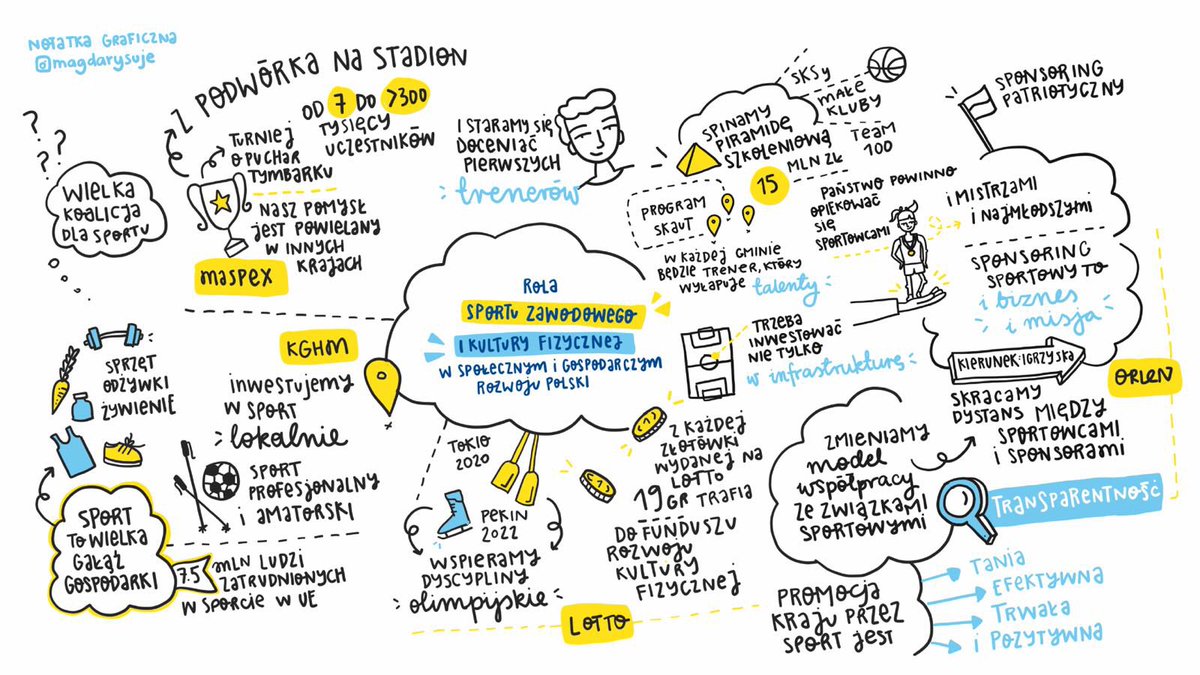 NOTATKA GRAFICZNA
@magdarysuje
Z PODWÓRKA NA STADION
OD 7 DO >300
TYSIĘCY
UCZESTNIKÓW
TURNIEJ
O PUCHAR
TYMBARKU
NASZ POMYSŁ
JEST POWIELANY
W INNYCH
KRAJACH
MASPEX
? ? ?
WIELKA
KOALICJA
DLA SPORTU
I STARAMY SIĘ
DOCENIAĆ
PIERWSZYCH
trenerów
SPINAMY
PIRAMIDĘ
SZKOLENIOWĄ
SKSy
MAŁE
KLUBY
TEAM
100
15 MLN ZŁ
PROGRAM
SKAUT
W KAŻDEJ GMINIE
BĘDZIE TRENER, KTÓRY
WYŁAPUJE talenty
PAŃSTWO POWINNO
OPIEKOWAĆ
SIĘ
SPORTOWCAMI
SPONSORING
PATRIOTYCZNY
I MISTRZAMI
I NAJMŁODSZYMI
SPONSORING
SPORTOWY TO
i biznes
i misja
KIERUNEK: IGRZYSKA
ORLEN
SKRACAMY
DYSTANS MIĘDZY
SPORTOWCAMI
I SPONSORAMI
ROLA
SPORTU ZAWODOWEGO
I KULTURY FIZYCZNEJ
W SPOŁECZNYM I GOSPODARCZYM
ROZWOJU POLSKI
TRZEBA
INWESTOWAĆ
NIE TYLKO
w infrastrukturę
SPRZĘT
ODŻYWKI
ŻYWIENIE
KGHM
INWESTUJEMY
W SPORT
lokalnie
SPORT
PROFESJONALNY
I AMATORSKI
SPORT
TO WIELKA
GAŁĄŹ
GOSPODARKI
7.5 MLN LUDZI
ZATRUDNIONYCH
W SPORCIE W UE
TOKIO
2020
PEKIN
2022
WSPIERAMY
DYSCYPLINY
olimpijskie
LOTTO
Z KAŻDEJ
ZŁOTÓWKI
WYDANEJ NA
LOTTO
19 GR TRAFIA
DO FUNDUSZU
ROZWOJU
KULTURY
FIZYCZNEJ
ZMIENIAMY
model
WSPÓŁPRACY
ZE ZWIĄZKAMI
SPORTOWYMI
TRANSPARENTNOŚĆ
PROMOCJA
KRAJU PRZEZ
SPORT JEST
TANIA
EFEKTYWNA
TRWAŁA
I POZYTYWNA